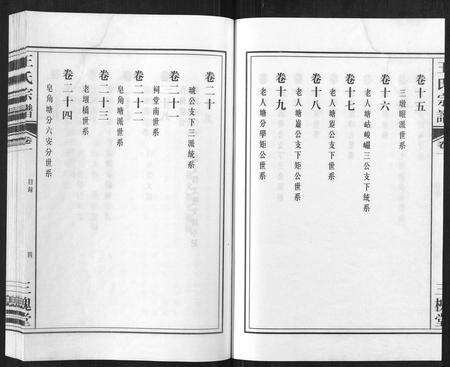 王氏宗譜
卷一
三槐堂
卷十五
三墩畈派世系
卷十六
老人塘
三公支下統系
卷十七
老人塘
公支下世系
卷十八
老人塘
公支下矩公世系
卷十九
老人塘分學矩公世系
卷二十
城公支下三派統系
卷二十一
祠堂南世系
卷二十二
皂角塘派世系
卷二十三
老堰橋世系
卷二十四
皂角塘分六安分世系
王氏宗譜
卷一
目錄
四
三槐堂